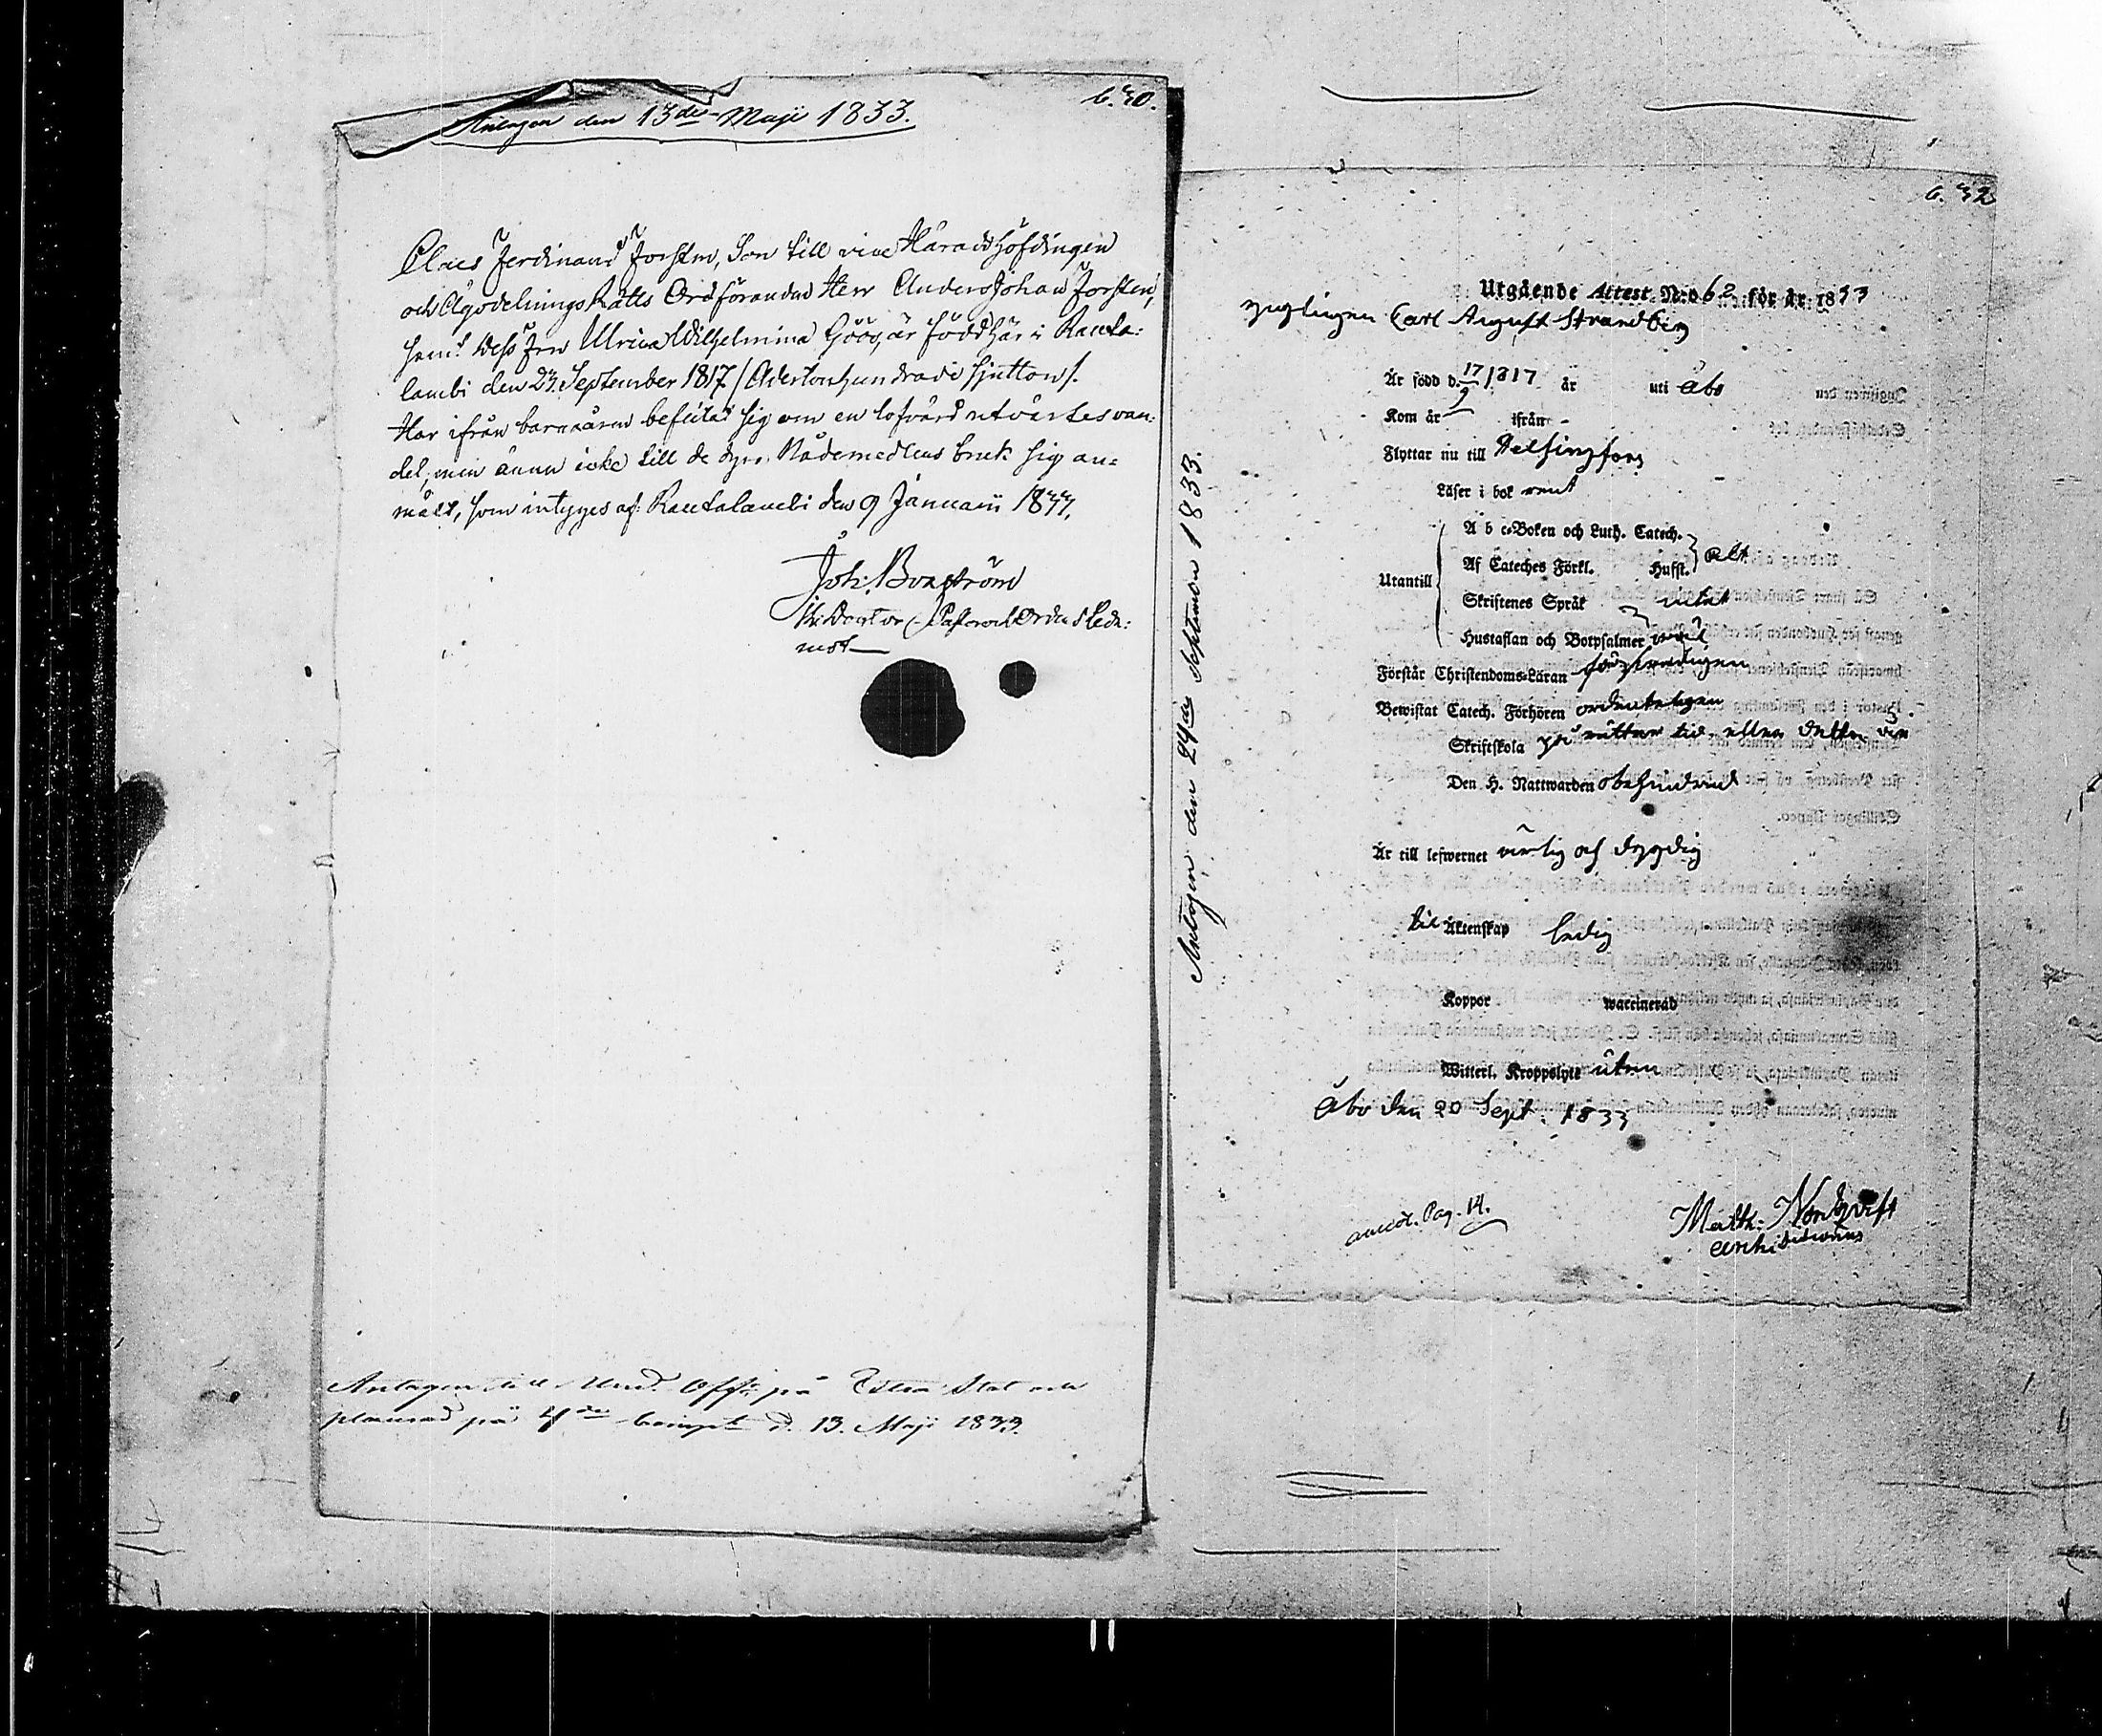 Antagen den 13de Maji 1833.
6.30.
Claes Ferdinand Forstén, Son till vice Häradshöfdingen
och ÄgodelningsRätts Ordföranden Herr Anders Johan Forstén,
samt dess Fru Ulrica Wilhelmina Göös, är född här i Rauta-
lambi den 23 September 1817 /Adertonhundrade sjutton/.
Har ifrån barnaåren beflitat sig om en lofvärd utvärtes van-
del, men ännu icke till de dyra Nådemedlens bruk sig an-
mält, som intygges af: Rautalambi den 9 Januarii 1833.
Joh: Bonsdröm
Th: Doctor, Past. och Ordens Leda-
mot
Antagen till Und. Off. på Extra Stat och
placerad på 4de Comp. d. 13. Maji 1833.
Antagen den 24de September 1833.
6. 32
Utgående Attest N:o 62 för år 1833
ynglingen Carl August Strandberg
Är född d. 17/9 1817 år uti Åbo
Kom år – ifrån –
Flyttar nu till Helsingfors
Läser i bok rent
Utantill
A b c-Boken och Luth. Catech.
Af Cateches Förkl. Husft. allt
Skriftenes Språk
Hustaflan och Botpsalmer
Förstår Christendoms-Läran försvarligen
Bewistat Catech. Förhören ordenteligen
Skriftskola på rättan tid, eller detta år
Den H. Nattwarden obehindrad
Är till lefwernet ärlig och dygdig
till Äktenskap ledig
Koppor waccinerad
Witterl. Kroppslyte utan
Åbo den 20 Sept. 1833
Pag. 14.
Math: Nordqvist